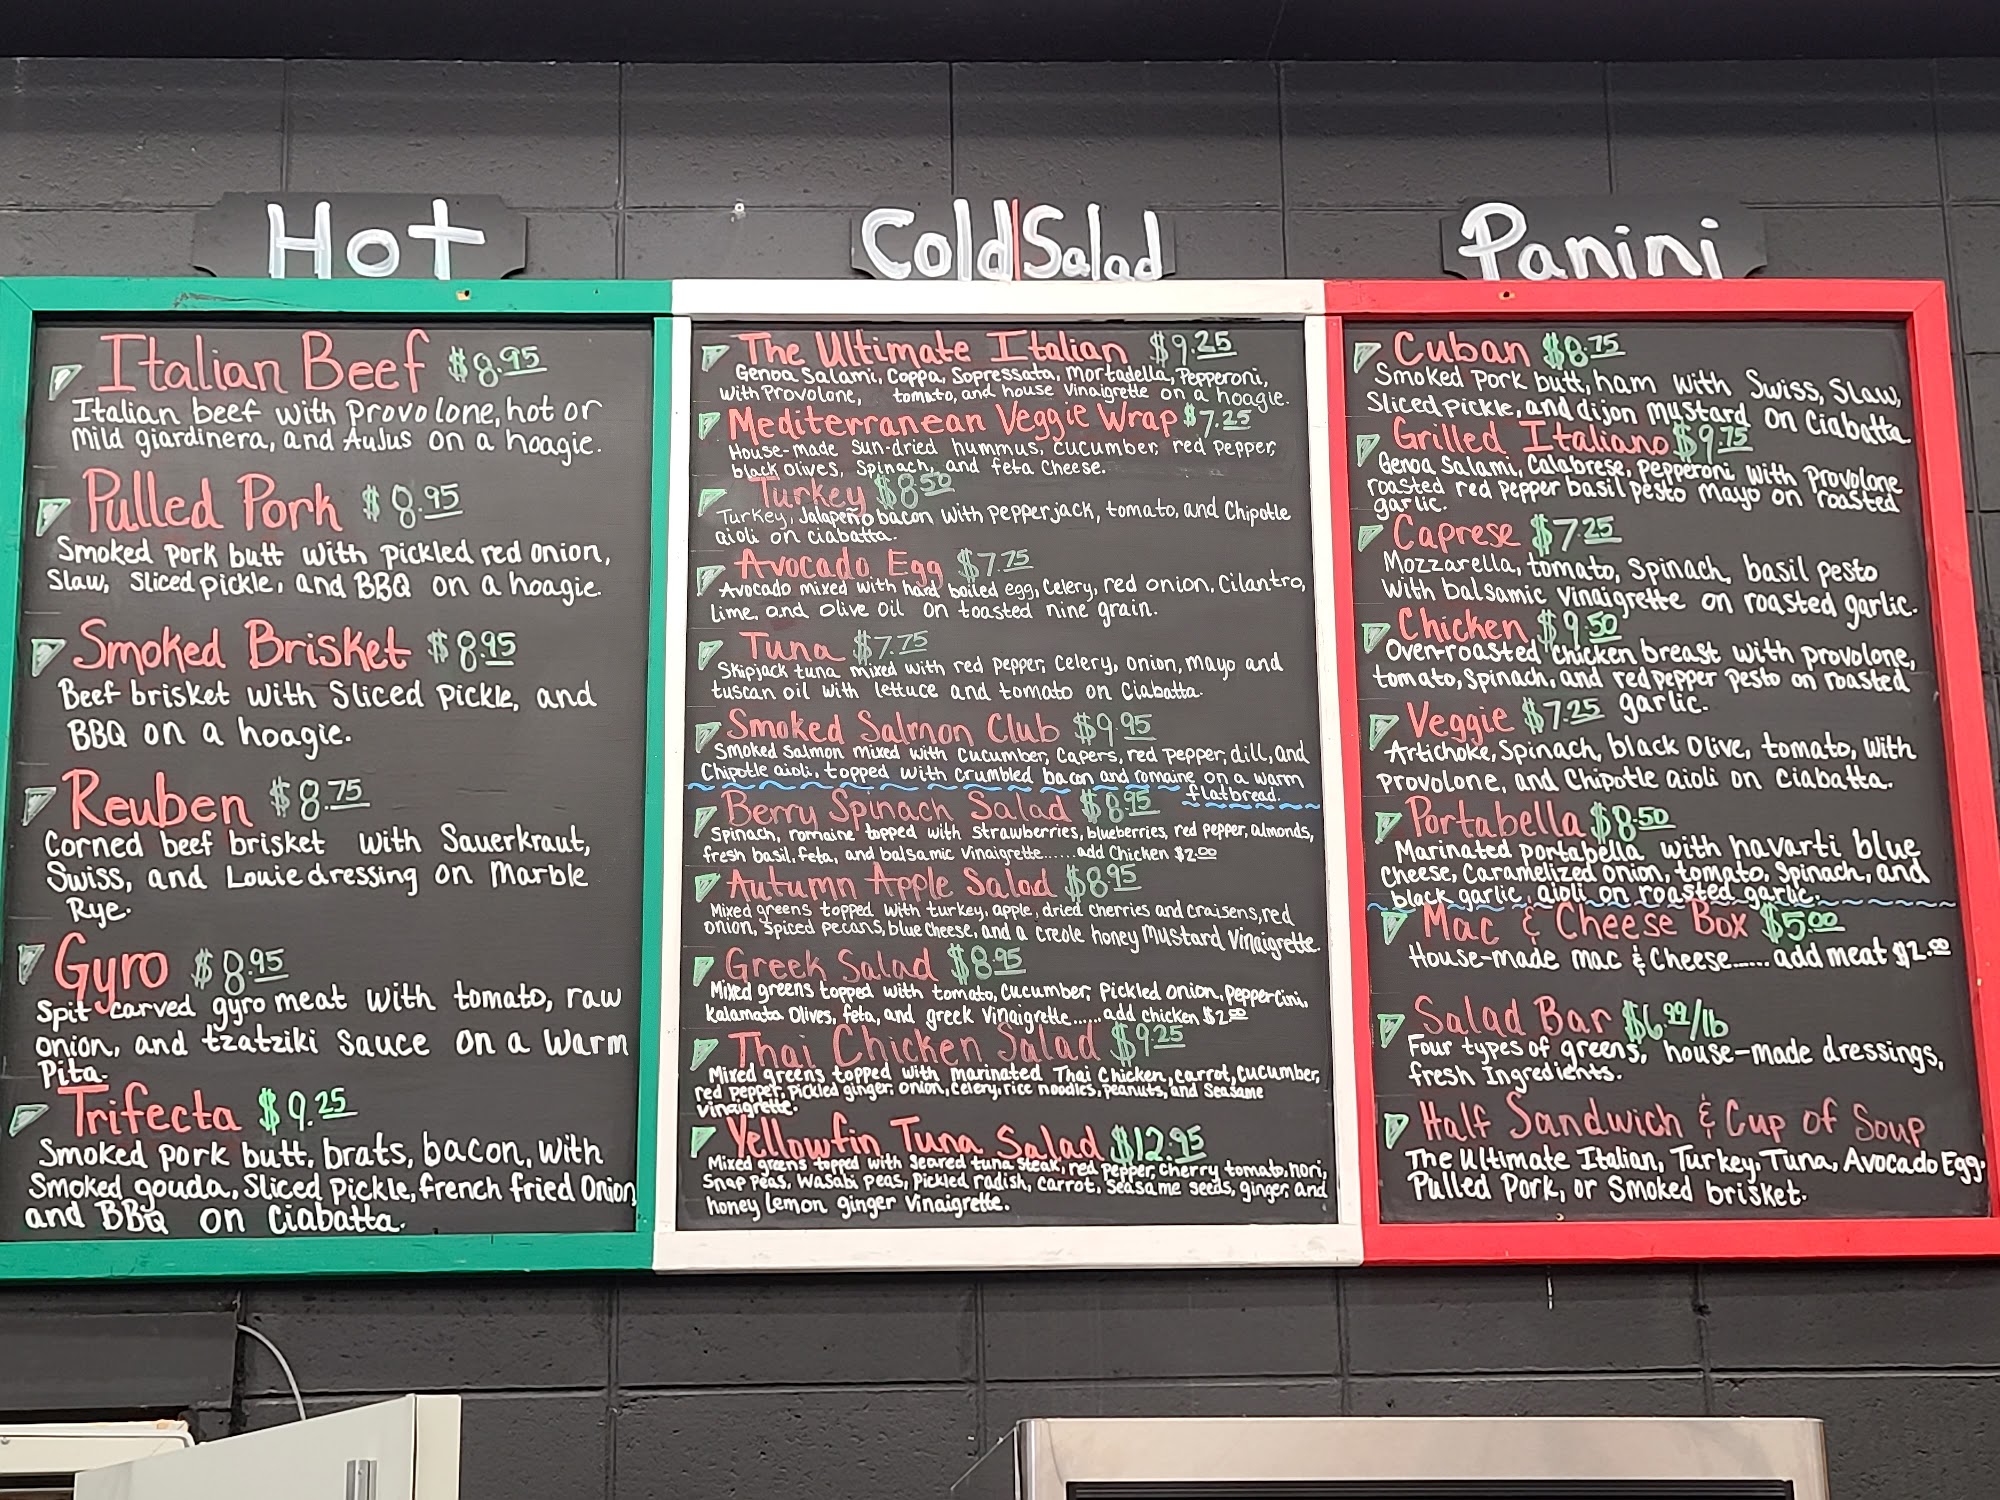 Hot
Italian Beef $8.95
Italian beef with provolone, hot or
mild giardinera, and AuJus on a hoagie.
Pulled Pork $8.95
Smoked pork butt with pickled red onion,
Slaw, sliced pickle, and BBQ on a hoagie.
Smoked Brisket $8.95
Beef brisket with sliced pickle, and
BBQ on a hoagie.
Reuben $8.75
Corned beef brisket with Sauerkraut,
Swiss, and Louie dressing on Marble
Rye.
Gyro $8.95
Spit carved gyro meat with tomato, raw
onion, and tzatziki sauce on a warm
Pita.
Trifecta $9.25
Smoked pork butt, brats, bacon, with
Smoked gouda, sliced pickle, french fried onion,
and BBQ on Ciabatta.
Cold|Salad
The Ultimate Italian $9.25
Genoa Salami, Coppa, Sopressata, Mortadella, Pepperoni,
with Provolone, tomato, and house Vinaigrette on a hoagie.
Mediterranean Veggie Wrap $7.25
House-made sun-dried hummus, cucumber, red pepper,
black olives, Spinach, and feta Cheese.
Turkey $8.50
Turkey, Jalapeño bacon with pepperjack, tomato, and Chipotle
aioli on ciabatta.
Avocado Egg $7.75
Avocado mixed with hard boiled egg, Celery, red onion, Cilantro,
lime, and olive oil on toasted nine grain.
Tuna $7.75
Skipjack tuna mixed with red pepper, Celery, onion, mayo and
tuscan oil with lettuce and tomato on Ciabatta.
Smoked Salmon Club $9.95
Smoked salmon mixed with Cucumber, Capers, red pepper, dill, and
Chipotle aioli, topped with crumbled bacon and romaine on a warm
flatbread.
Berry Spinach Salad $8.95
Spinach, romaine topped with strawberries, blueberries, red pepper, almonds,
fresh basil, feta, and balsamic Vinaigrette......add Chicken $2.00
Autumn Apple Salad $8.95
Mixed greens topped with turkey, apple, dried cherries and craisens, red
onion, spiced pecans, blue cheese, and a creole honey mustard Vinaigrette.
Greek Salad $8.95
Mixed greens topped with tomato, cucumber, pickled onion, peppercini,
Kalamata Olives, feta, and greek Vinaigrette......add chicken $2.00
Thai Chicken Salad $9.25
Mixed greens topped with marinated Thai Chicken, carrot, cucumber,
red pepper, pickled ginger, onion, celery, rice noodles, peanuts, and Seasame
vinaigrette.
Yellowfin Tuna Salad $12.95
Mixed greens topped with seared tuna steak, red pepper, cherry tomato, nori,
Snap peas, wasabi peas, pickled radish, carrot, seasame seeds, ginger, and
honey lemon ginger Vinaigrette.
Panini
Cuban $8.75
Smoked pork butt, ham with Swiss, Slaw,
Sliced pickle, and dijon mustard on Ciabatta
Grilled Italiano $9.75
Genoa Salami, Calabrese, pepperoni with provolone
roasted red pepper basil pesto mayo on roasted
garlic.
Caprese $7.25
Mozzarella, tomato, Spinach, basil pesto
with balsamic vinaigrette on roasted garlic.
Chicken $9.50
Over-roasted chicken breast with provolone,
tomato, spinach, and red pepper pesto on roasted
garlic.
Veggie $7.25
Artichoke, Spinach, black olive, tomato, with
provolone, and Chipotle aioli on Ciabatta.
Portabella $8.50
Marinated portabella with havarti blue
Cheese, Caramelized onion, tomato, spinach, and
black garlic aioli on roasted garlic.
Mac & Cheese Box $5.00
House-made mac & Cheese......add meat $2.00
Salad Bar $6.99/lb
Four types of greens, house-made dressings,
fresh Ingredients.
Half Sandwich & Cup of Soup
The Ultimate Italian, Turkey, Tuna, Avocado Egg,
Pulled Pork, or Smoked brisket.